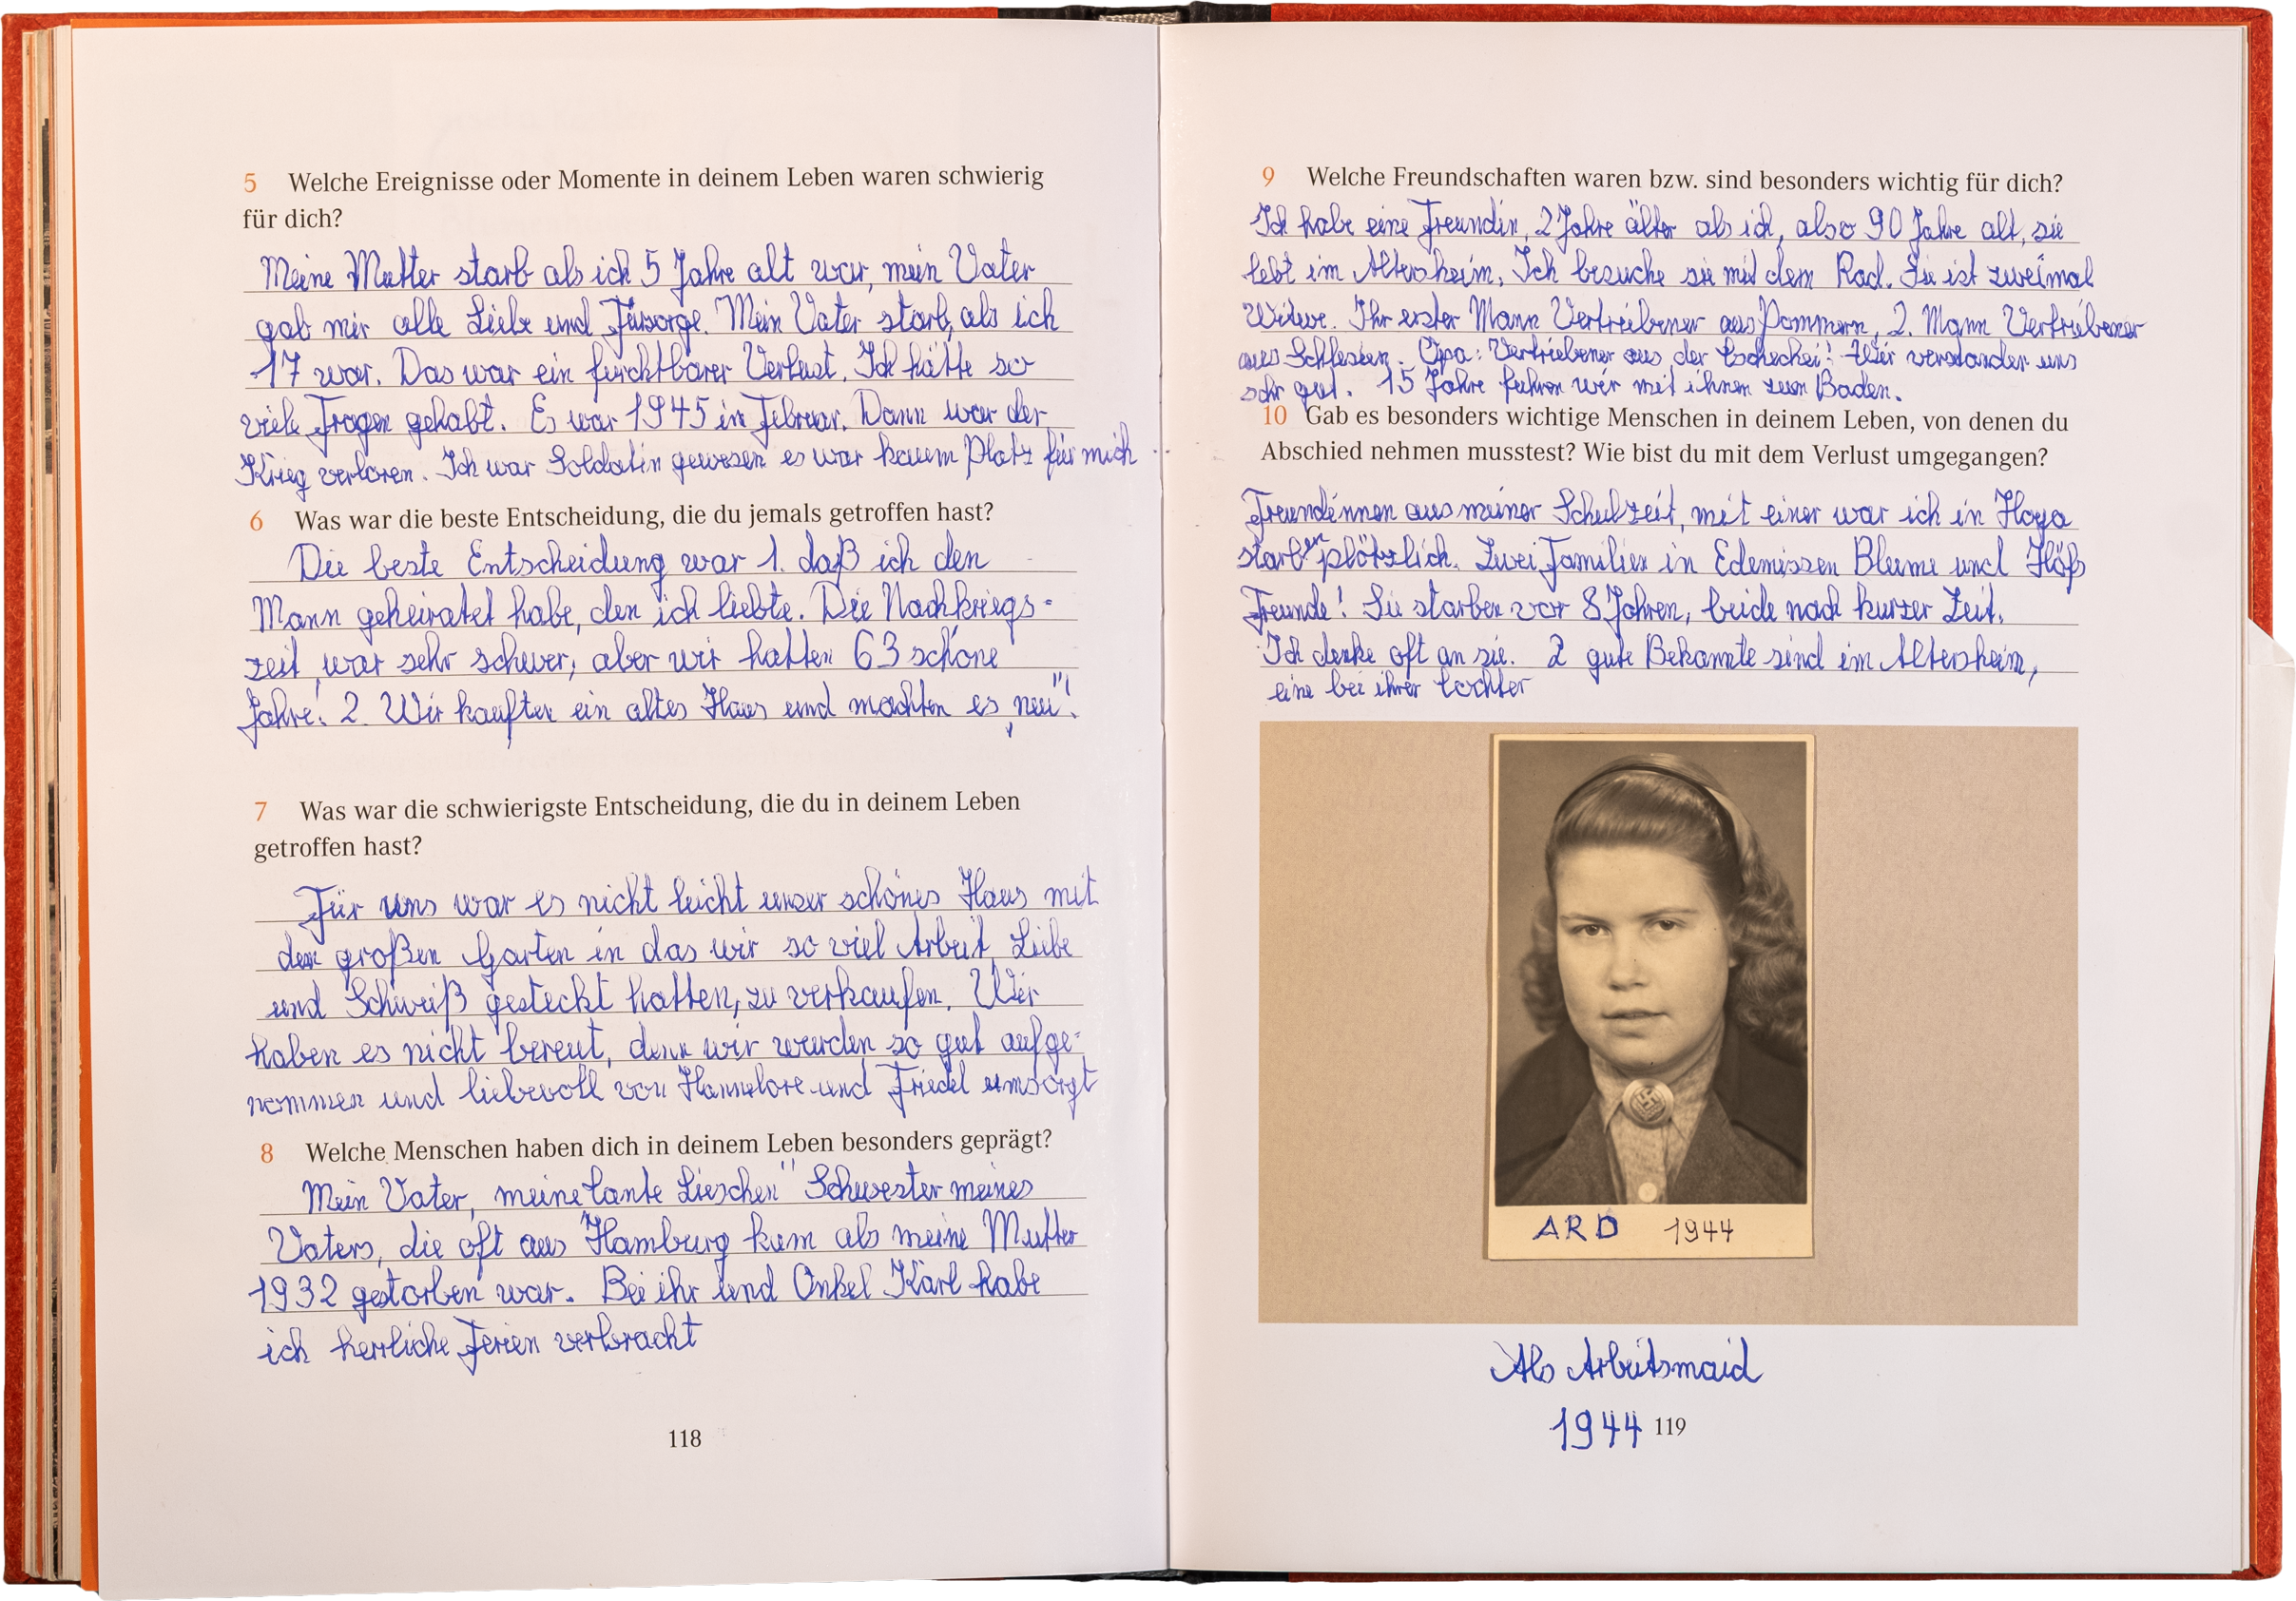 5 Welche Ereignisse oder Momente in deinem Leben waren schwierig
für dich?
Meine Mutter starb als ich 5 Jahre alt war, mein Vater
gab mir alle Liebe und Füsorge. Mein Vater starb, als ich
17 war. Das war ein furchtbarer Verlust. Ich hätte so
viele Fragen gehabt. Es war 1945 in Februar. Dann war der
Krieg verloren. Ich war Soldatin gewesen es war kaum Platz für mich
6 Was war die beste Entscheidung, die du jemals getroffen hast?
Die beste Entscheidung war 1. daß ich den
Mann geheiratet habe, den ich liebte. Die Nachkriegs-
zeit war sehr schwer, aber wir hatten 63 schöne
Jahre! 2. Wir kauften ein altes Haus und machten es „neu"!
7 Was war die schwierigste Entscheidung, die du in deinem Leben
getroffen hast?
Für uns war es nicht leicht unser schönes Haus mit
den großen Garten in das wir so viel Arbeit, Liebe
und Schweiß gesteckt hatten, zu verkaufen. Wir
haben es nicht bereut, denn wir wurden so gut aufge-
nommen und liebevoll von Hannelore und Friedel umsorgt
8 Welche Menschen haben dich in deinem Leben besonders geprägt?
Mein Vater, meine Tante Lieschen" Schwester meines
Vaters, die oft aus Hamburg kam als meine Mutter
1932 gestorben war. Bei ihr und Onkel Karl habe
ich herrliche Ferien verbracht
118
9 Welche Freundschaften waren bzw. sind besonders wichtig für dich?
Ich habe eine Freundin, 2 Jahre älter als ich, also 90 Jahre alt, sie
lebt im Altersheim. Ich besuche sie mit dem Rad. Sie ist zweimal
Witwe. Ihr erster Mann Vertriebener aus Pommern, 2. Mann Vertriebener
aus Schlesien. Opa: Vertriebener aus der Tschechei! Wir verstanden uns
sehr gut. 15 Jahre fuhren wir mit ihnen zum Baden.
10 Gab es besonders wichtige Menschen in deinem Leben, von denen du
Abschied nehmen musstest? Wie bist du mit dem Verlust umgegangen?
Freundinnen aus meiner Schulzeit, mit einer war ich in Hoya
starben plötzlich. Zwei Familien in Edemissen Blume und
Freunde! Sie starben vor 8 Jahren, beide nach kurzer Zeit.
Ich denke oft an sie. 2 gute Bekannte sind im Altersheim,
eine bei ihrer Tochter
ARD 1944
Als Arbeitsmaid
1944
119